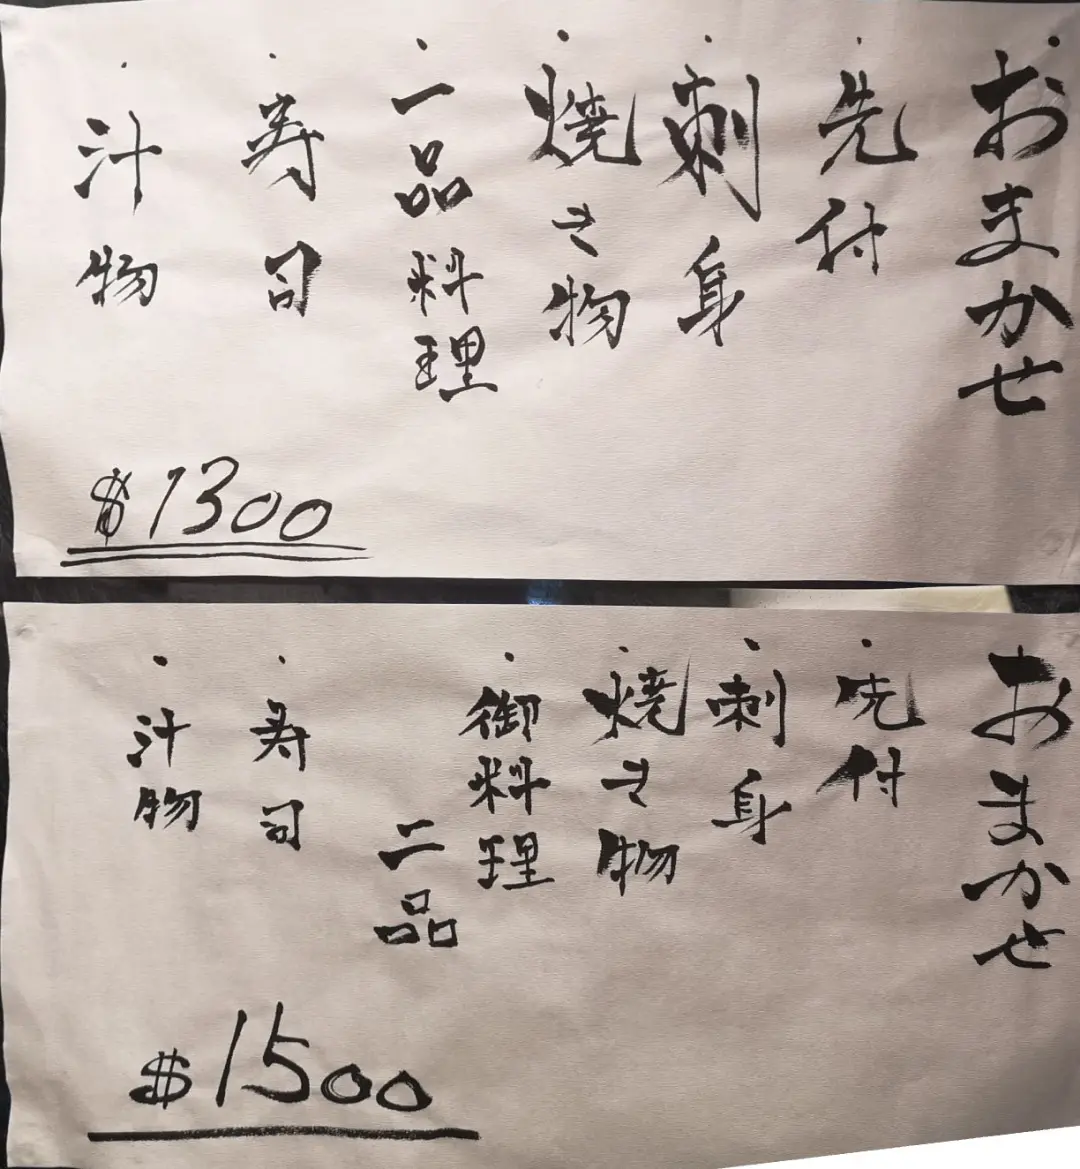 おまかせ
・先付
・刺身
・焼き物
・一品料理
・寿司
・汁物
$1300
おまかせ
・先付
・刺身
・焼き物
・御料理
二品
・寿司
・汁物
$1500